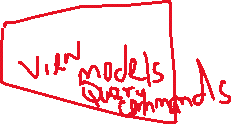 View models
Query
Commands